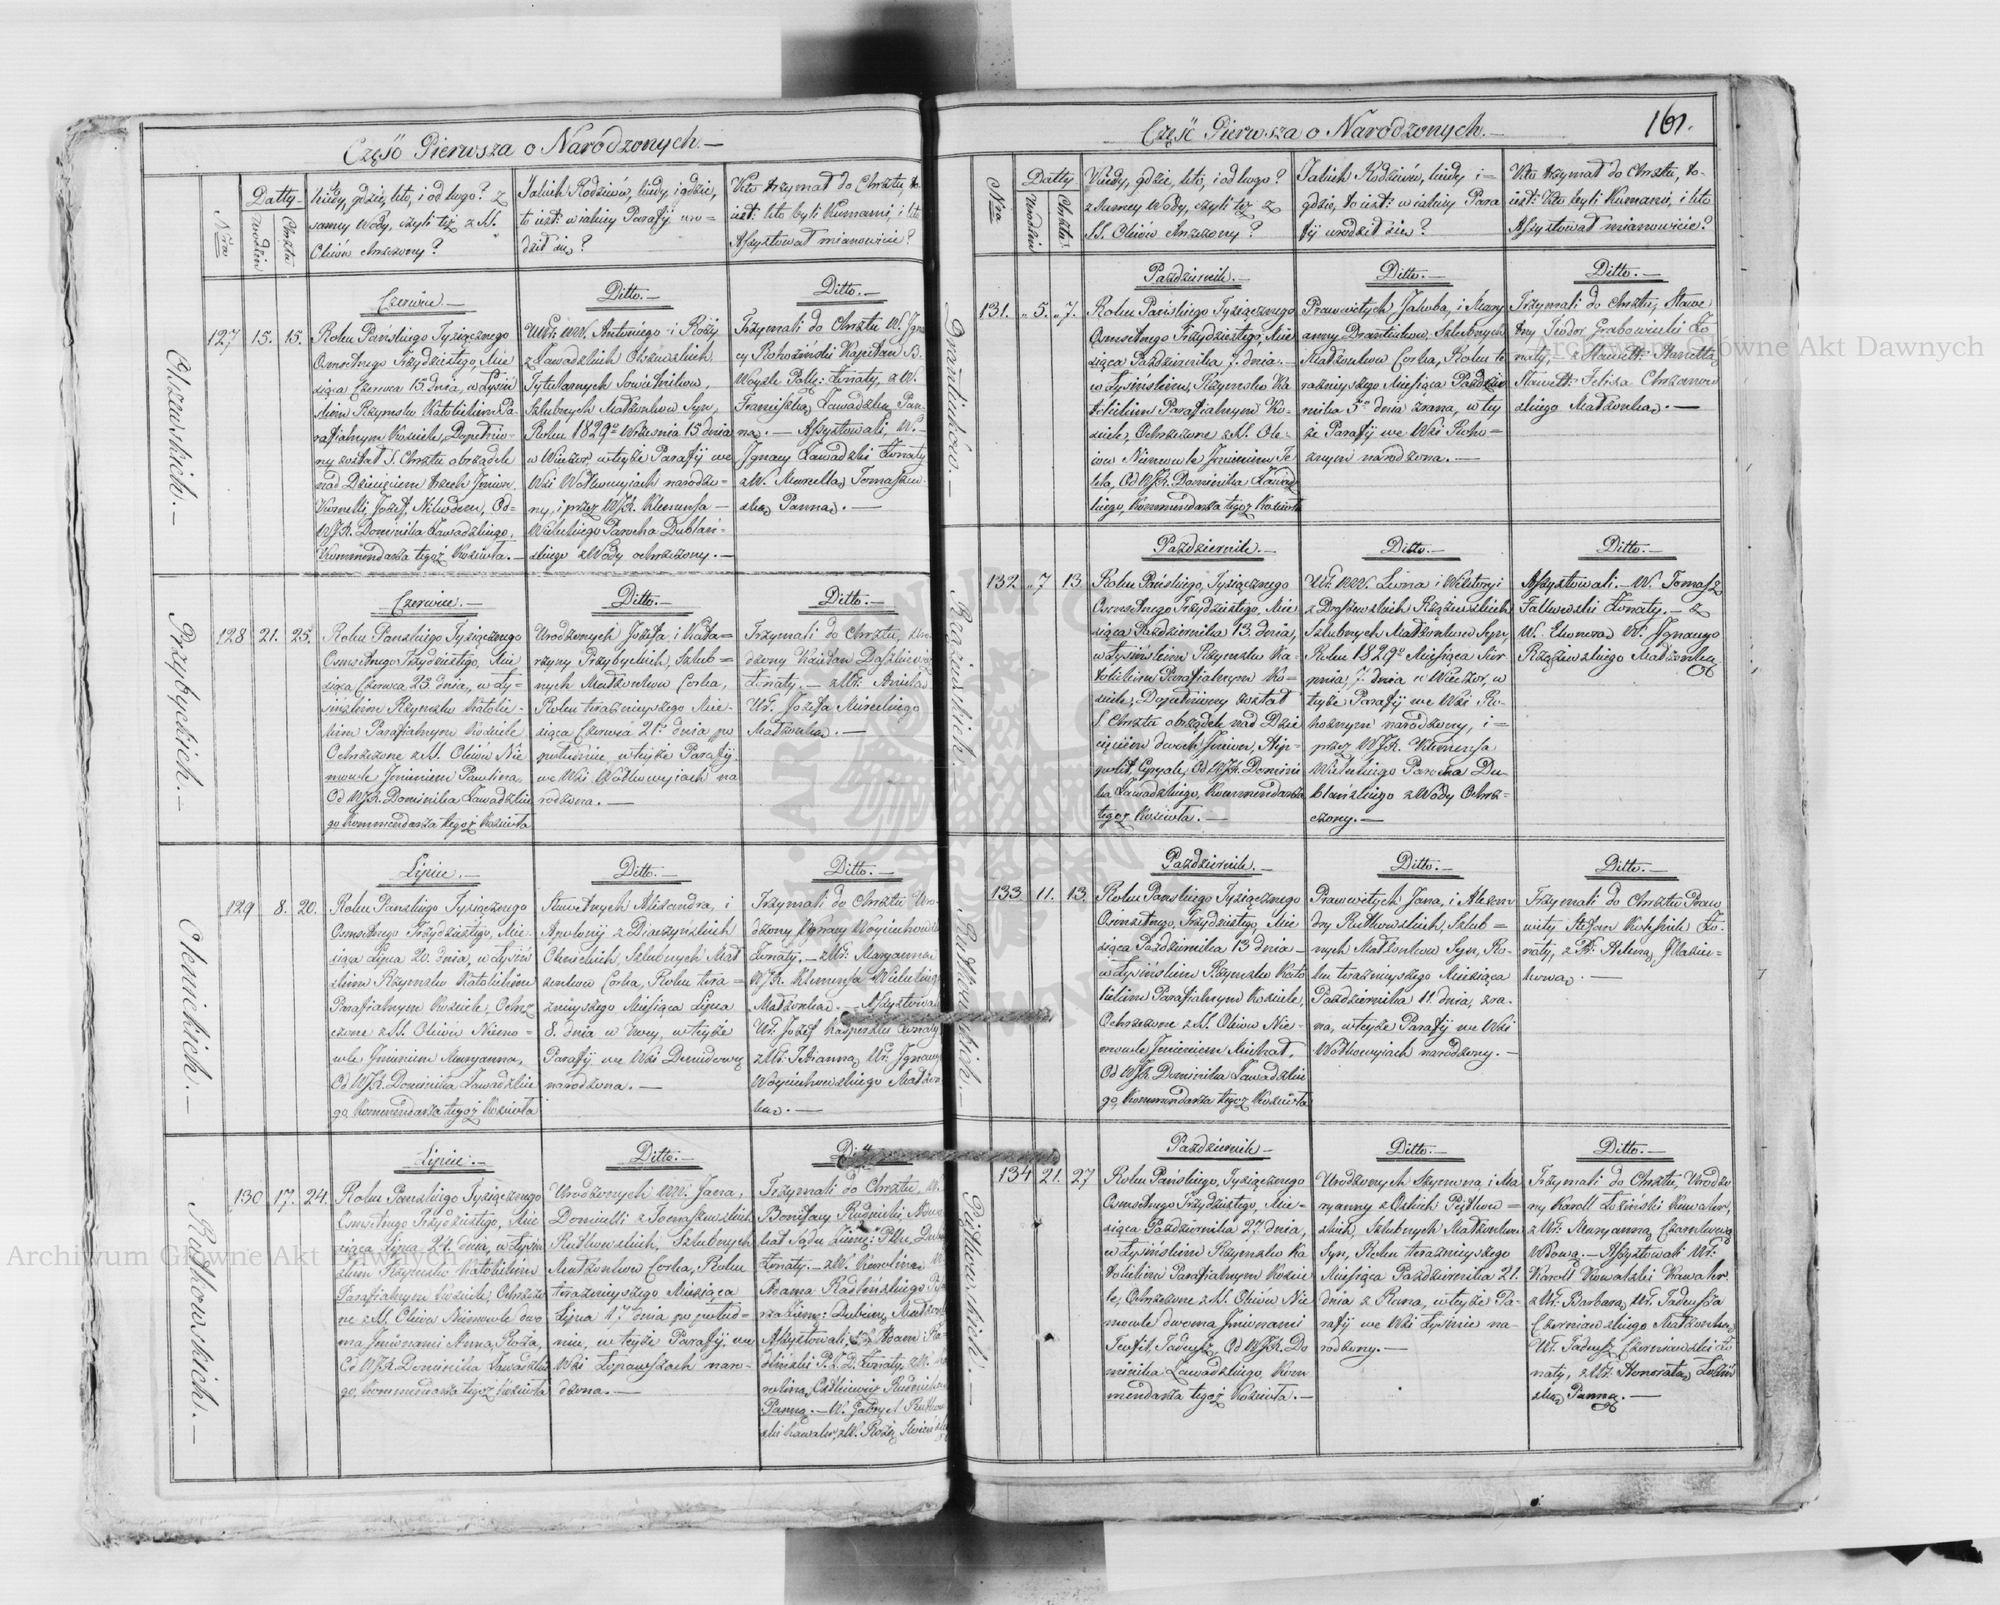 Część Pierwsza o Narodzonych.—
Nra
Datty
urodzin
Chrztu
Kiedy, gdzie, kto, i od kogo? z
samey Wody, czyli też z SS.
Oleiów chrzczony?
Jakich Rodziców, kiedy, i gdzie,
to iest: w iakiey Parafij uro=
dził się?
Kto trzymał do Chrztu, to
iest: kto byli Kumami, i kto
Assystował mianowicie?
Olszewskich.—
127
15.
15.
Czerwiec.—
Roku Pańskiego Tysiącznego
Osmsetnego Trzydziestego, Mie
siąca Czerwca 15. dnia, w Łysiń
skim Rzymsko Katolickim Pa-
rafialnym Kościele, Dopełnio-
ny został S. Chrztu obrządek
nad Dziecięciem trzech Imion,
Kornelli, Józef, Nikodem, Od-
WJX. Dominika Zawadzkiego,
Kommendarza tegoż Kościoła.—
Ditto.—
Antoniego i Róży
z Zawadzkich Olszewskich
Tytularnych Sowietników,
Szlubnych Małżonków Syn,
Roku 1829o Września 15 dnia
w Wieczor, w teyże Parafij we
Wsi Wołkowyiach narodzo-
ny, i przez WJX. Klemensa
Wieluckiego Parocha Dublań-
skiego z Wody ochrzczony.—
Ditto.—
Trzymali do Chrztu W. Igna
cy Rohoziński Kapitan B.
Woysk Pols: Żonaty, z W.
Franciszką Zawadzką Pan-
ną.— Assystowali, W.
Ignacy Zawadzki Żonaty
z W. Marcellą Tomaszew-
ską Panną.—
Przybyckich.—
128
21.
25.
Czerwiec.—
Roku Pańskiego Tysiącznego
Osmsetnego Trzydziestego, Mie
siąca Czerwca 25. dnia, w Ły-
sińskim Rzymsko Katolic-
kim Parafialnym Kościele
Ochrzczone z SS. Oleiów Nie
mowle Imieniem Paulina,
Od WJX. Dominika Zawadzkie
go Kommendarza tegoż Kościoła
Ditto.—
Urodzonych Józefa, i Kata=
rzyny Przybyckich, Szlub=
nych Małżonków Corka,
Roku teraznieyszego Mie-
siąca Czerwca 21o dnia po
południu, w teyże Parafij
we Wsi Wołkowyiach na
rodzona.—
Ditto.—
Trzymali do Chrztu, Uro
dzony Kaietan Daszkiewicz
Żonaty.— z Ur: Anielą
Ur: Józefa Mireckiego
Małżonką.—
Olenickich.—
129
8.
20.
Lipiec.—
Roku Pańskiego Tysiącznego
Osmsetnego Trzydziestego, Mie-
siąca Lipca 20. dnia, w Łysiń
skim Rzymsko Katolickim
Parafialnym Kościele, Ochrz
czone z SS. Oleiów Niemo-
wle Imieniem Maryanna,
Od WJX. Dominika Zawadzkie
go, Kommendarza tegoż Kościoła
Ditto.—
Sławetnych Alexandra, i
Apolonij z Diaczyńskich
Olenickich, Szlubnych Mał
żonków Corka, Roku tera=
znieyszego Miesiąca Lipca
8. dnia w Nocy, w teyże
Parafij we Wsi Demidowy
narodzona.—
Ditto.—
Trzymali do Chrztu Uro-
dzony Ignacy Woyciechowski
Żonaty.— z Ur: Maryanną
WJX. Klemensa Wieluckiego
Małżonką.— Assystowali
Ur: Józef Kasperski Żonaty
z Ur: Marianną Ur: Ignacego
Woyciechowskiego Małżon
ką.—
Rutkowskich.—
130
17.
24.
Lipiec.—
Roku Pańskiego Tysiącznego
Osmsetnego Trzydziestego, Mie
siąca Lipca 24. dnia, w Łysiń
skim Rzymsko Katolickim
Parafialnym Kościele, Ochrzczo
ne z SS. Oleiów Niemowle dwo
ma Imionami Anna, Róża,
Od WJX. Dominika Zawadzkie
go, Kommendarza tegoż Kościoła
Ditto.—
Urodzonych Jana,
Domicelli z Tomaszewskich
Rutkowskich, Szlubnych
Małżonków Corka, Roku
teraznieyszego Miesiąca
Lipca 17 dnia po połud-
niu, w teyże Parafij, we
Wsi Łopuszkach naro-
dzona.—
Ditto.—
Trzymali do Chrztu, W.
Bonifacy Rudnicki
Żonaty.— z W. Karoliną W.
Adama
Małżon
Assystowali
Żonaty, z W. Ka
roliną Rudnicką
Panną.— W. Gabryel Rutkow
ski Kawaler, z W. Różą
Część Pierwsza o Narodzonych.—
161.
Nra
Datty
urodzin
Chrztu
Kiedy, gdzie, kto, i od kogo?
z samey Wody, czyli też z
SS. Oleiów chrzczony?
Jakich Rodziców, kiedy i=
gdzie, to iest: w iakiey Para
fij urodził się?
Kto trzymał do Chrztu, to-
iest: Kto byli Kumami, i kto
Assystował mianowicie?
131.
5.
7.
Październik.—
Roku Pańskiego Tysiącznego
Osmsetnego Trzydziestego, Mie
siąca Października 7. dnia
w Łysińskim, Rzymsko Ka
tolickim Parafialnym Ko-
ściele, Ochrzczone z SS. Ole-
iów Niemowle Imieniem Te
kla, Od WJX. Dominika Zawadz
kiego, Kommendarza tegoż Kościoła
Ditto.—
Prawowitych, Jakuba, i Mary
anny Szlubnych
Małżonków Corka, Roku te
raznieyszego Miesiąca Paździer
nika 5o dnia zrana, w tey
że Parafij we Wsi Roho=
znym narodzona.—
Ditto.—
Trzymali do Chrztu, Sławe
tny Teodor Grabowiecki Żo
naty, z Sławett: Henriettą
Sławett: Felixa Chrzanow
skiego Małżonką.—
132
7
13
Październik.—
Roku Pańskiego, Tysiącznego
Osmsetnego Trzydziestego, Mie
siąca Października 13. dnia,
w Łysińskim Rzymsko Ka-
tolickim Parafialnym Ko-
ściele, Dopełniony został
S. Chrztu obrządek nad Dzie
cięciem dwoch Imion, Hip-
polit, Cypryan, Od WJX. Domini
ka Zawadzkiego, Kommendarza
tegoż Kościoła.—
Ditto.—
Leona i Wiktoryi
Rzążewskich
Szlubnych Małżonków Syn,
Roku 1829o Miesiąca Sier
pnia, 7. dnia w Wieczor, w
teyże Parafij we Wsi Ro-
hoznym narodzony, i=
przez WJX. Klemensa
Wieluckiego Parocha Du-
blańskiego z Wody Ochrz-
czony.—
Ditto.—
Assystowali.— W. Tomasz
Falkowski Żonaty.— z
W. Eleonorą W. Ignacego
Rzążewskiego Małżonką.
Rutkowskich.—
133
11.
13.
Październik.—
Roku Pańskiego Tysiącznego
Osmsetnego, Trzydziestego, Mie
siąca Października 13 dnia
w Łysińskim Rzymsko Kato
lickim Parafialnym Kościele,
Ochrzczone z SS. Oleiów Nie-
mowle Imieniem Michał,
Od WJX Dominika Zawadzkie
go, Kommendarza tegoż Kościoła
Ditto.—
Prawowitych Jana, i Alexan
dry Rutkowskich, Szlub=
nych Małżonków Syn, Ro-
ku teraznieyszego Miesiąca
Października 11. dnia, zra-
na, w teyże Parafij we Wsi
Wołkowyiach narodzony.—
Ditto.—
Trzymali do Chrztu Prawo
wity Stefan Żo-
naty, z Pr: Heleną
.—
134
21.
27
Październik—
Roku Pańskiego, Tysiącznego
Osmsetnego Trzydziestego, Mie-
siąca Października 27. dnia,
w Łysińskim Rzymsko Ka
tolickim Parafialnym Koście
le, Ochrzczone z SS. Oleiów Nie
mowle dwoma Imionami
Teofil Tadeusz, Od WJX. Do
minika Zawadzkiego, Kom
mendarza tegoż Kościoła.—
Ditto.—
Urodzonych Szymona, i Ma
ryanny z
Szlubnych Małżonków
Syn, Roku teraznieyszego
Miesiąca Października 21.
dnia z Rana, w teyże Pa-
rafij we Wsi Łysinie na-
rodzony.—
Ditto.—
Trzymali do Chrztu, Urodzo
ny Karoll Łoziński Kawaler,
z Ur: Maryanną
Wdową.— Assystowali Ur:
Karoll Kowalski Kawaler.
z Ur: Barbarą, Ur: Tadeusza
Czerniawskiego Małżonką
Ur: Tadeusz Czerniawski Żo
naty, z Ur: Honoratą Łoziń
ską Panną.—
Archiwum Główne Akt Dawnych
Archiwum Główne Akt Dawnych